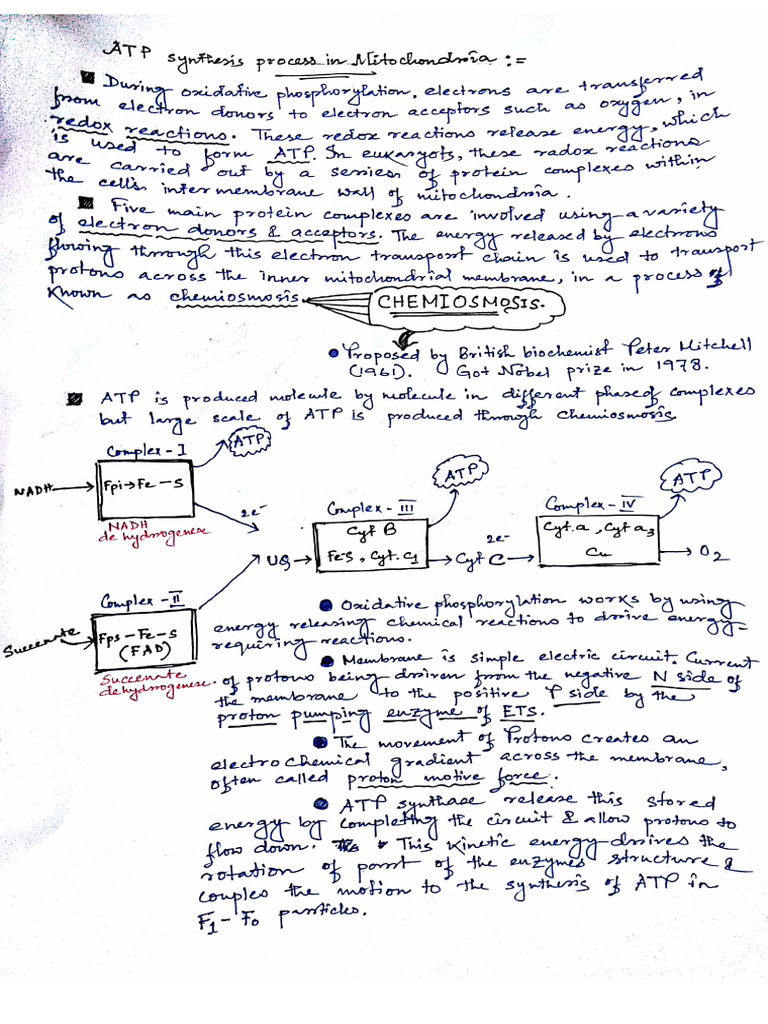 ATP synthesis process in Mitochondria :=
During oxidative phosphorylation, electrons are transferred
from electron donors to electron acceptors such as oxygen, in
redox reactions. These redox reactions release energy, which
is used to form ATP. In eukaryots, these radox reactions
are carried out by a series of protein complexes within
the cell's inter membrane wall of mitochondria.
Five main protein complexes are involved using a variety
of electron donors & acceptors. The energy released by electrons
flowing through this electron transport chain is used to transport
protons across the inner mitochondrial membrane, in a process of
known as chemiosmosis
CHEMIOSMOSIS.
Proposed by British biochemist Peter Mitchell
(1961). Got Nobel prize in 1978.
ATP is produced molecule by molecule in different phase of complexes
but large scale of ATP is produced through Chemiosmosis
Complex - I
ATP
NADH
Fpi→Fe-S
NADH
dehydrogenese
2e⁻
Complex - III
ATP
Cyt B
Fe-S, Cyt. C1
UQ
Cyt C
2e⁻
Complex - IV
ATP
Cyt. a, Cyt a3
Cu
O2
Complex - II
Succenate
Fps-Fe-S
(FAD)
Succenate
dehydrogenese.
Oxidative phosphorylation works by using
energy releasing chemical reactions to drive energy=
requiring reactions.
Membrane is simple electric circuit. Current
of protons being driven from the negative N side of
the membrane to the positive P side by the
proton pumping enzyme of ETS.
The movement of Protons creates an
electrochemical gradient across the membrane,
often called proton motive force.
ATP synthase release this stored
energy by completing the circuit & allow protons to
flow down. This Kinetic energy drives the
rotation of part of the enzymes structure &
couples the motion to the synthesis of ATP in
F1-F0 particles.